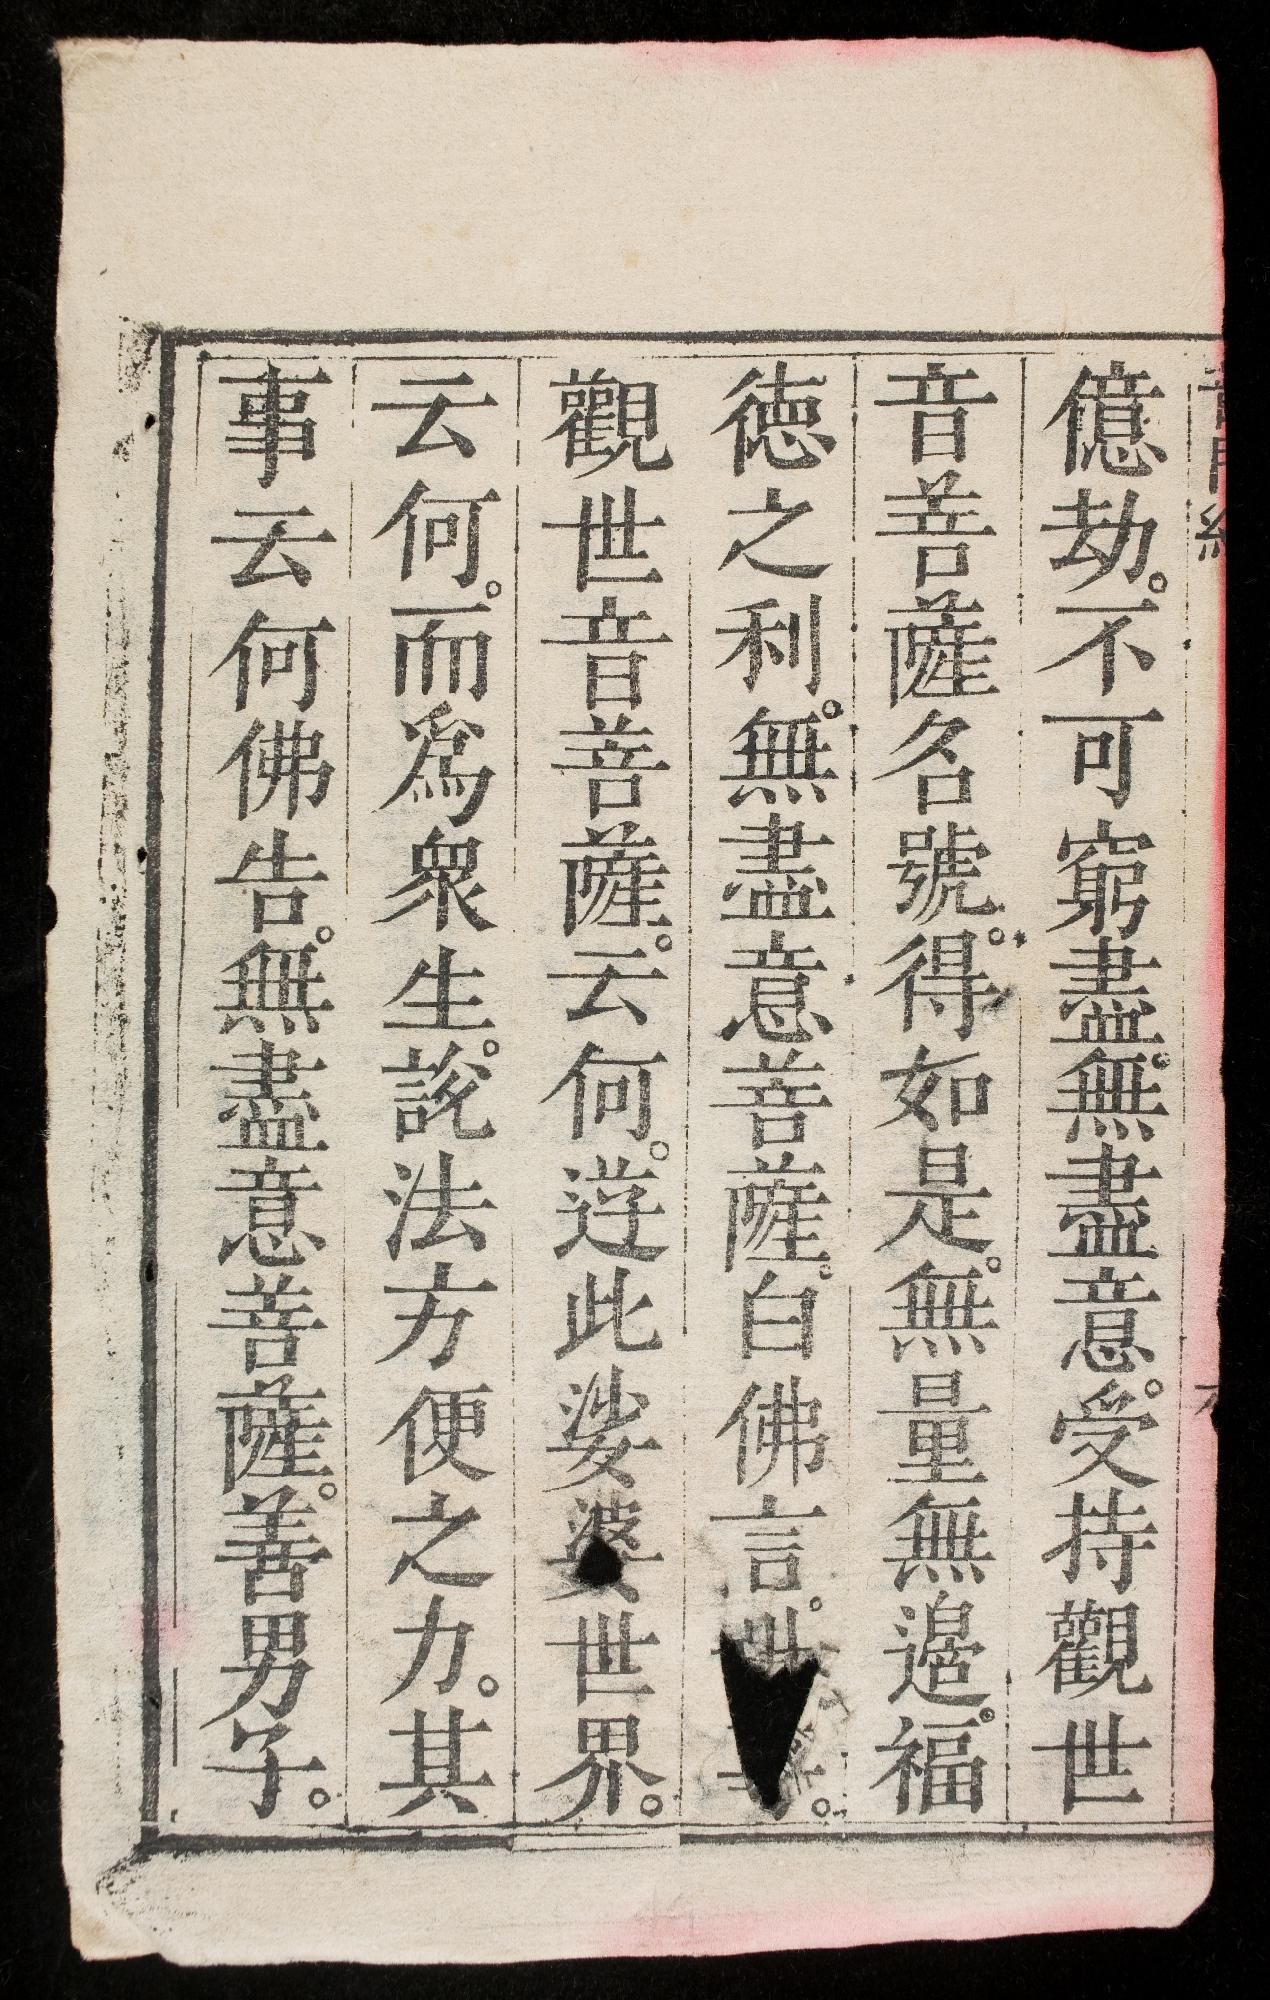 億劫。不可窮盡。無盡意。受持觀世
音菩薩名號。得如是。無量無邉。福
徳之利。無盡意菩薩。白佛言。世
觀世音菩薩。云何。遊此娑婆世界。
云何。而爲衆生。説法方便之力。其
事云何佛告。無盡意菩薩。善男子。